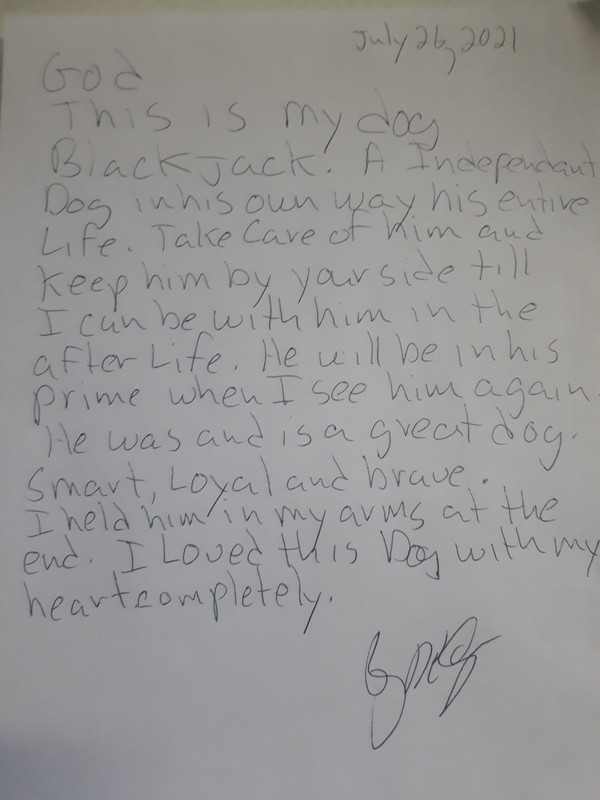 July 26, 2021
God
This is my dog
Blackjack. A Independant
Dog in his own way his entire
Life. Take Care of him and
keep him by your side till
I can be with him in the
after Life. He will be in his
prime when I see him again.
He was and is a great dog.
Smart, Loyal and brave.
I held him in my arms at the
end. I Loved this Dog with my
heart completely.